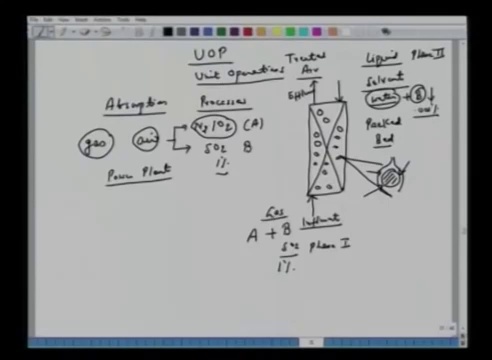 UOP
Unit Operations
Processes
Absorption
gas
air
N2/O2 (A)
SO2 B
1%
Power Plant
Treated
Air
Effl
Liquid Phase II
Solvent
water + B
Packed
Bed
Gas
Influent
A + B
SO2 Phase I
1%